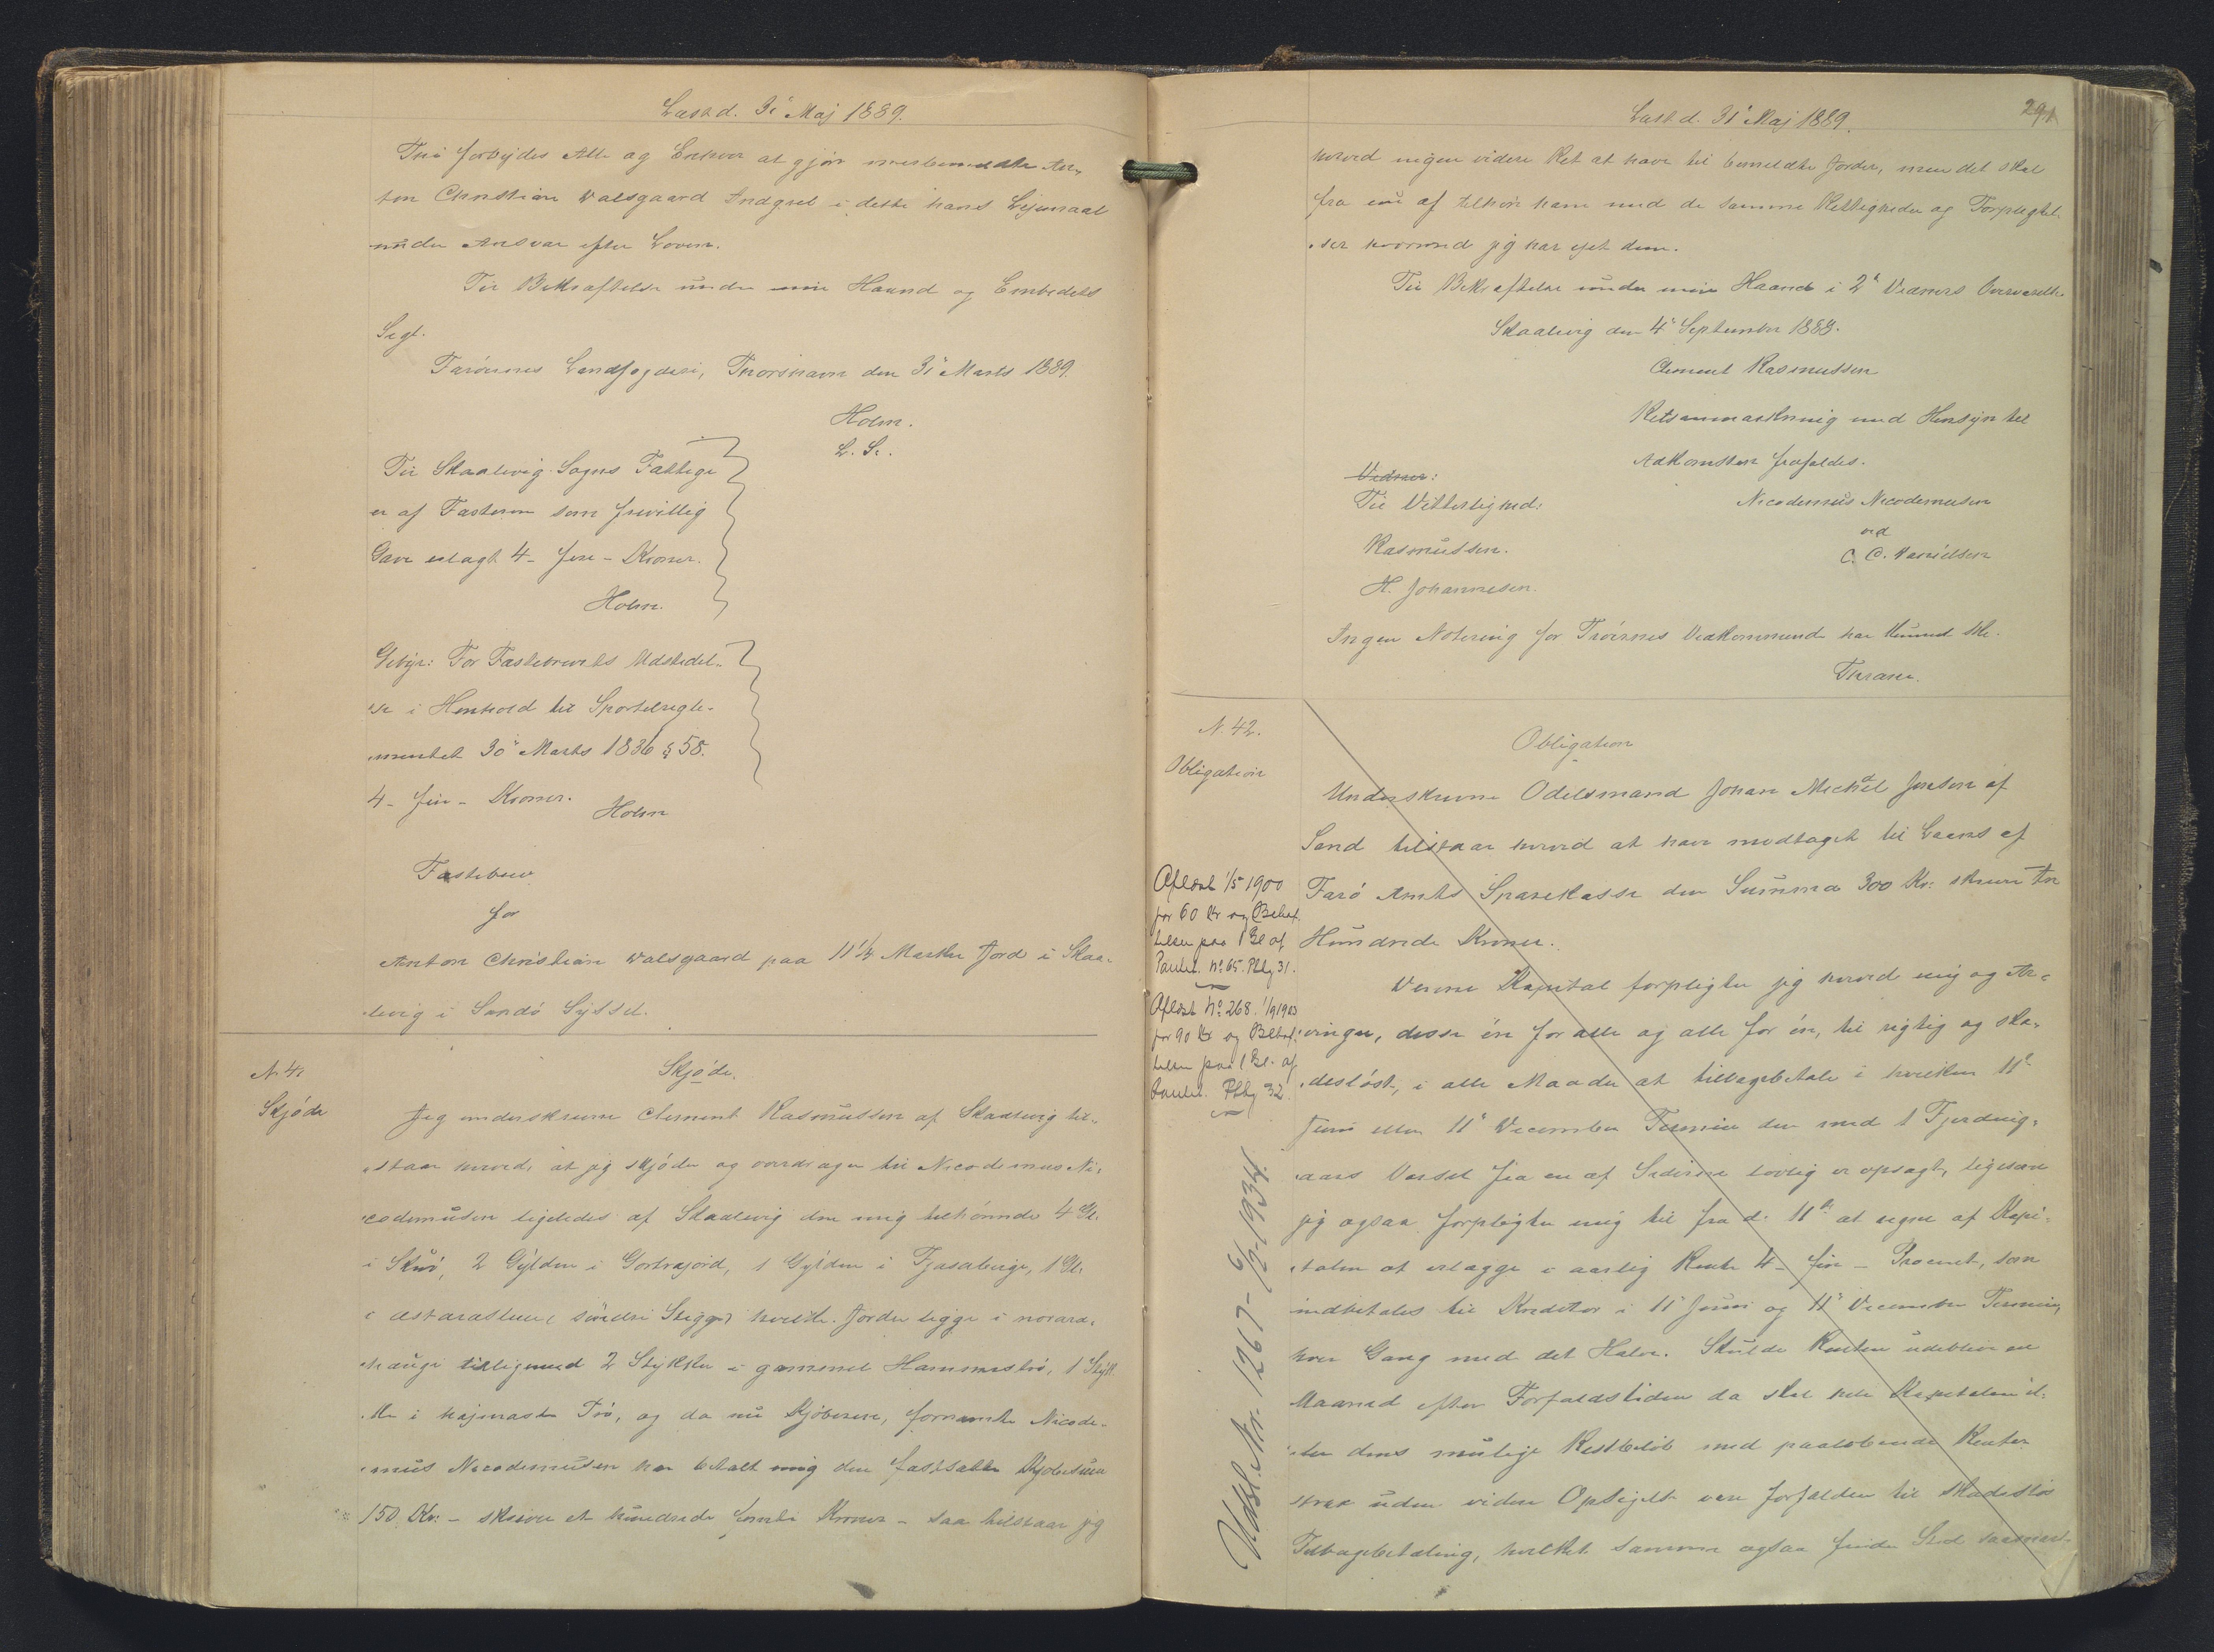 Læst d. 31' Maj 1889.
Thi forbydes Alle og Enhver at gjøre ovenbemeldte An-
ton Christian Dalsgaard Indgreb i dette hans Lejemaal
under Ansvar efter Loven.
Til Bekræftelse under min Haand og Embedets
Segl.
Færøernes Landfogderi, Thorshavn den 31' Marts 1889.
Holm.
L. S.
Til Skaalevig Sogns Fattige
er af Fæsteren som frivillig
Gave erlagt 4 - fire - Kroner.
Holm.
Gebyr: For Fæstebrevets Udstedel-
se i Henhold til Sportelregle-
mentet 30' Marts 1836 § 58.
4 - fire - Kroner.
Holm
Fæstebrev
for
Anton Christian Dalsgaard paa 11 1/4 Marker Jord i Skaa-
levig i Sandø Syssel.
N. 41
Skjøde
Skjøde.
Jeg underskrevne Clement Rasmussen af Skaalevig til-
staar herved, at jeg skjøder og overdrager til Nicodemus Ni-
codemusen ligeledes af Skaalevig den mig tilhørende 4 Gl.
i 2 Gylden i 1 Gylden i 1 Gl.
i søndre hvilke Jorder ligge i
tilligemed 2 Stykker i gammel 1 Styk-
ke i Trø, og da nu Kjøberen, fornævnte Nicode-
mus Nicodemusen har betalt mig den fastsatte Kjøbesum
150 Kr. - skriver et hundrede femti Kroner - saa tilstaar jeg
Læst d. 31' Maj 1889.
291
herved ingen videre Ret at have til bemeldte Jorder, men det skal
fra nu af tilhøre ham med de samme Rettigheder og Forpligtel-
ser hvormed jeg har ejet dem.
Til Bekræftelse under min Haand i 2' Vidners Overværelse
Skaalevig den 4' September 1888.
Clement Rasmussen
Retsanmærkning med Hensyn til
Adkomsten frafaldes.
Vidner:
Til Vitterlighed:
Nicodemus Nicodemusen
ved
Rasmussen.
C. C. Danielsen
H. Johannesen.
Ingen Notering for Trøernes Vedkommende har kunnet ske.
Thrane.
N. 42.
Obligation
Obligation
Underskrevne Odelsmand Johan Michal Jensen af
Sand tilstaar herved at have modtaget til Laans af
Færø Amts Sparekasse den Summa 300 Kr. skriver Tre
Hundrede Kroner.
Denne Kapital forpligter jeg herved mig og Ar-
vinger, disse én for alle og alle for én, til rigtig og ska-
desløst, i alle Maader at tilbagebetale i hvilken 11'
Juni eller 11' December Termin den med 1 Fjerding-
aars Varsel fra en af Siderne lovlig er opsagt, ligesom
jeg ogsaa forpligter mig til fra d. 11' at regne af Kapi-
talen at erlægge i aarlig Rente 4 - fire - Procent, som
indbetales til Kreditor i 11' Juni og 11' December Termin,
hver Gang med det Halve. Skulde Renten udeblive en
Maaned efter Forfaldstiden da skal hele Kapitalen el-
ler dens mulige Restbeløb med paaløbende Renter
strax uden videre Opsigelse være forfalden til skadesløs
Tilbagebetaling, hvilket samme ogsaa finder Sted
Aflæst 1/5 1900
for 60 Kr og Behæf-
telsen paa 1 Gl af
Pantet. No 65. Pbl. 31.
Aflæst No 268. 1/9 1903
for 90 Kr og Behæf-
telsen paa 1 Gl. af
Pantet. Pbl. 32.
Udsl. Nr. 1267 - 6/9-1934.